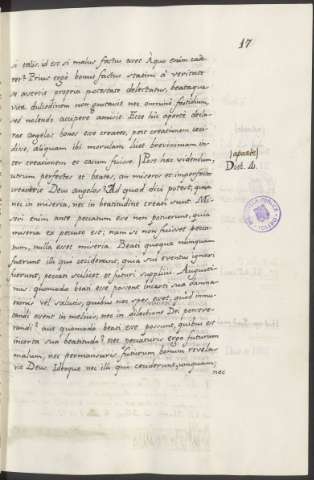 17
si talis, id est si malus factus esset. A quo enim cade-
ret? Prius ergo bonus factus statim a veritate
se avertit propria potestate delectatus, beataque
vitæ dulcedinem non gustavit nec omnino fastidivit,
sed nolendo accipere amisit. Ecce hic aperte decla-
rat angelos bonos esse creatos, post creationem ceci-
disse, aliquam ibi morulam licet brevissimam in-
ter creationem et casum fuisse. Post hæc videndum,
utrum perfectos et beatos, an miseros et imperfectos
creaverit Deus angelos. Ad quod dici potest, quia
nec in miseria, nec in beatitudine creati sunt. Mi-
seri enim ante peccatum esse non potuerunt, quia
miseria ex peccato est; nam si non fuisset pecca-
tum, nulla esset miseria. Beati quoque nunquam
fuerunt illi qui ceciderunt, quia sui eventus ignari
fuerunt, peccati scilicet et futuri supplicii. Augusti-
nus: quomodo beati esse poterant incerti sua damna-
tionis vel salutis, quibus nec spes esset, quod immu-
tandi erant in melius, nec in dilectione Dei perseve-
randi? aut quomodo beati esse possunt, quibus est
incerta sua beatitudo? nec peccaturis ergo futurum
malum, nec permansuris futurum bonum revela-
vit Deus. Ideoque nec illi qui ceciderunt, unquam,
nec
(aparte)
Dist. 4.